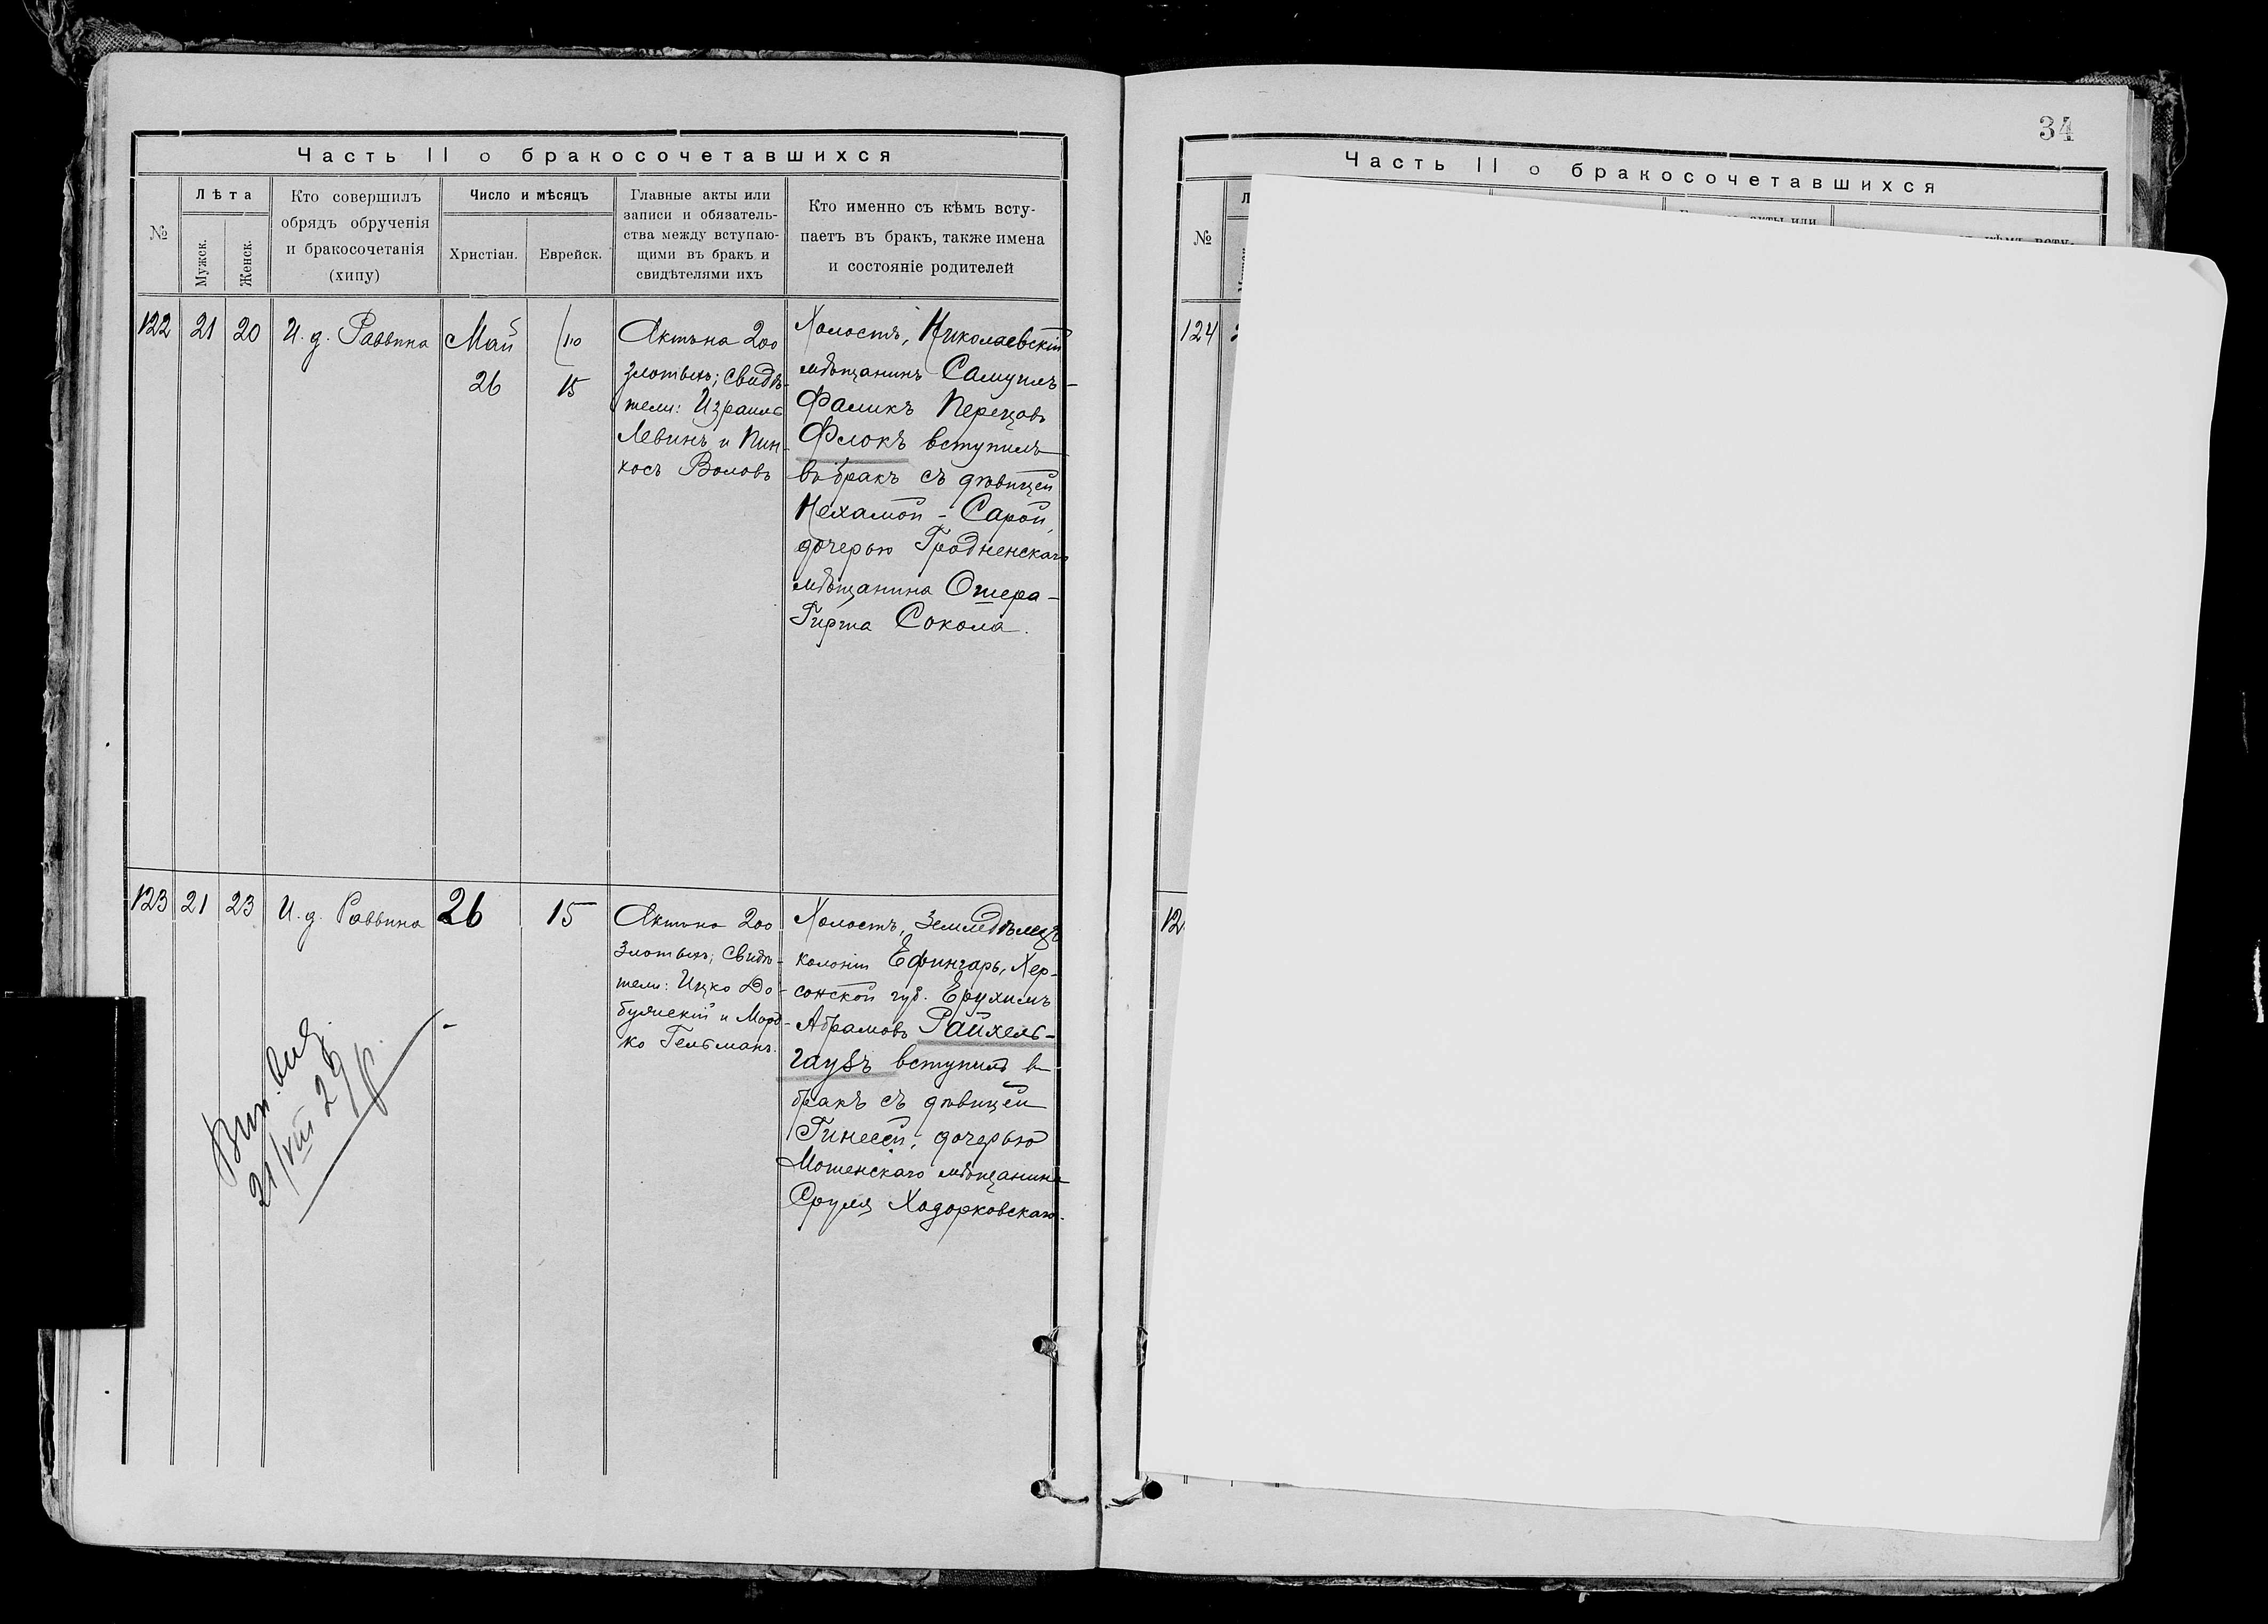 Часть II о бракосочетавшихся
№
Лѣта
Мужск.
Женск.
Кто совершилъ
обрядъ обрученія
и бракосочетанія
(хипу)
Число и мѣсяцъ
Христіан.
Еврейск.
Главные акты или
записи и обязатель-
ства между вступаю-
щими въ бракъ и
свидѣтелями ихъ
Кто именно съ кѣмъ всту-
паетъ въ бракъ, также имена
и состояніе родителей
122
21
20
И. д. Раввина
Май
26
15
Актъ на 200
злотыхъ; свидѣ-
тели: Израиль
Левинъ и Пин-
хосъ Воловъ
Холостъ, Николаевскій
мѣщанинъ Самуилъ-
Фаликъ Перецовъ
Флокъ вступилъ
въ бракъ съ дѣвицей
Нехамой - Сарой,
дочерью Гродненскаго
мѣщанина Ошера-
Гирша Сокола.
123
21
23
И. д. Раввина
26
15
Актъ на 200
злотыхъ; свидѣ-
тели: Ицко До-
буляскій и Морд-
ко Гельманъ.
Холостъ, земледѣлецъ
колоніи Ефингарь, Хер-
сонской губ. Ерухимъ
Абрамовъ Райхель-
гаузъ вступилъ въ
бракъ съ дѣвицей
Гинесей, дочерью
Мошенскаго мѣщанина
Сруля Ходорковскаго.
Вып. вид.
21/VIII 29 г.
34
Часть II о бракосочетавшихся
№
124
12